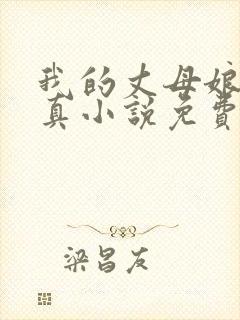 我的丈母娘
真小说免費
梁昌友